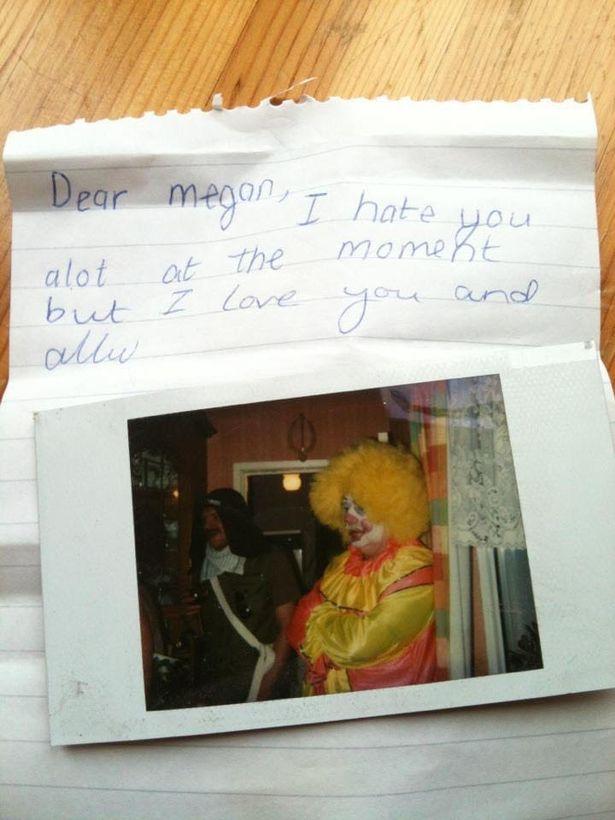 Dear megan, I hate you
alot at the moment
but I love you and